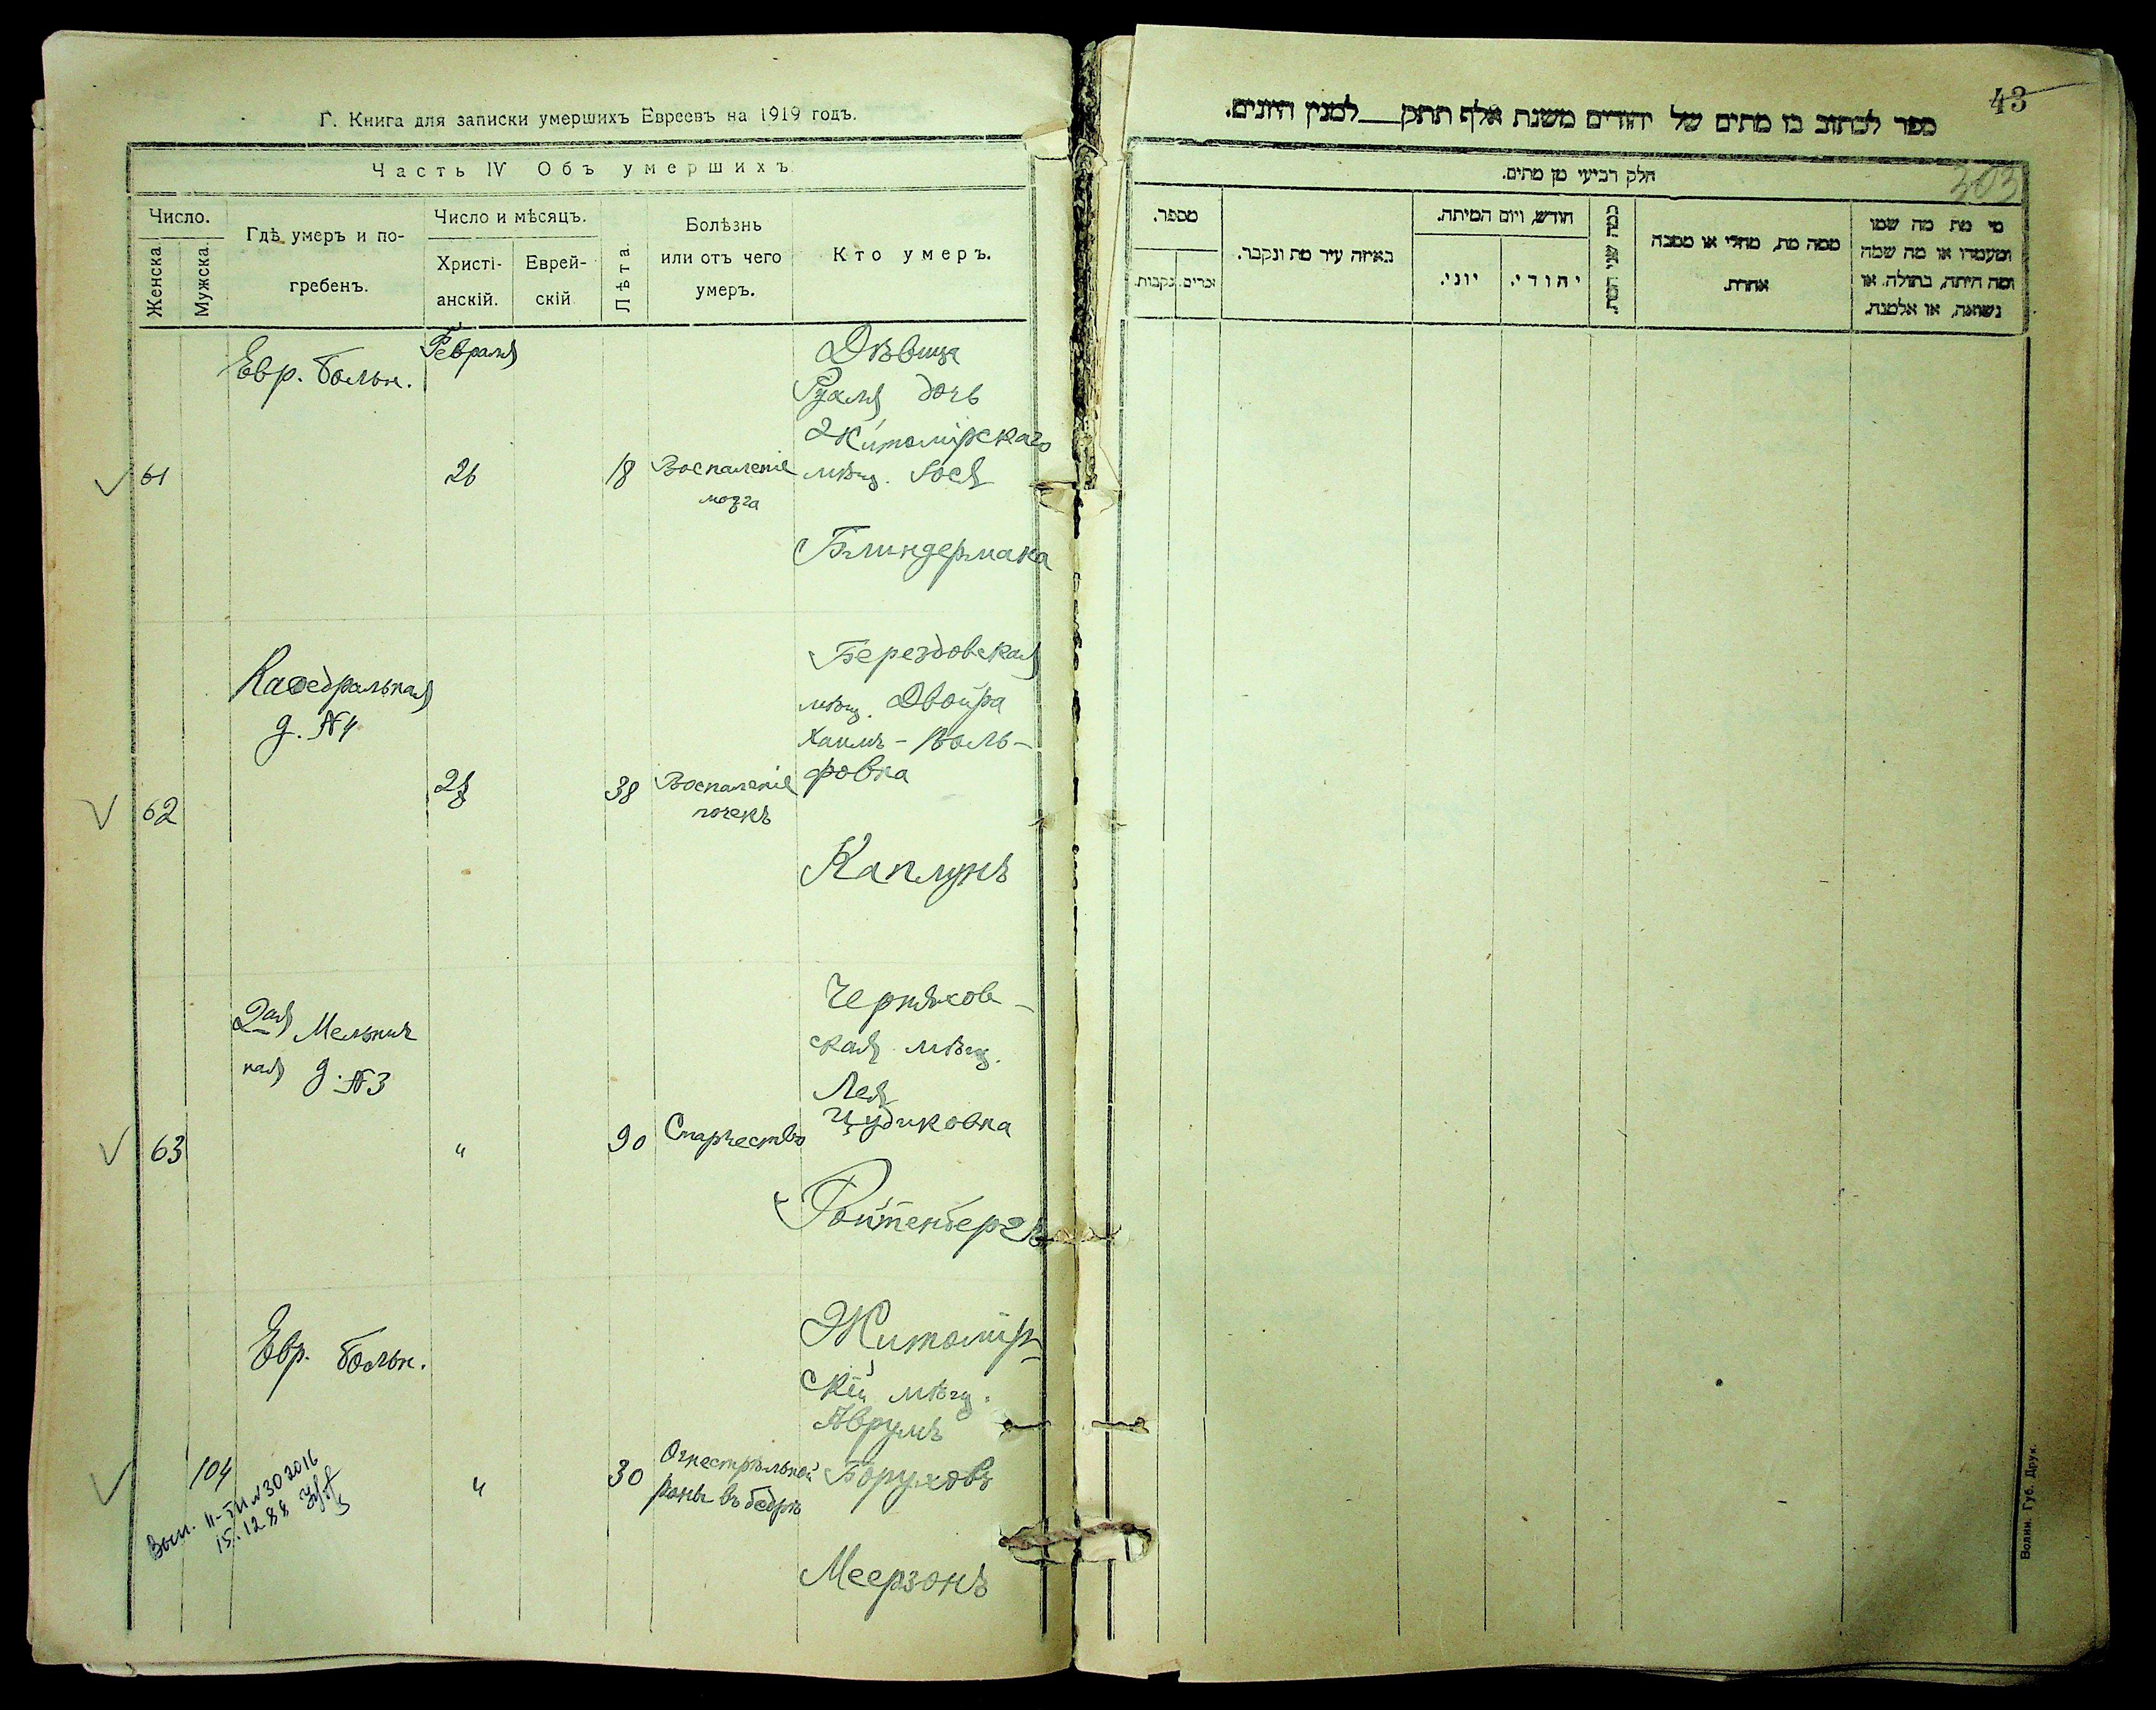 Г. Книга для записки умершихъ Евреевъ на 1919 годъ.
Часть IV Объ умершихъ
Число.
Женска
Мужска.
Гдѣ умеръ и по-
гребенъ.
Число и мѣсяцъ.
Христі-
анскій.
Еврей-
скій
Лѣта.
Болѣзнь
или отъ чего
умеръ.
Кто умеръ.
Евр. больн.
Февраля
61
26
18
Воспаленіе
мозга
Дѣвица
Рухля дочь
Житомірскаго
мѣщ. Іося
Блиндермана
Каѳедральная
д. №4
62
38
Воспаленіе
почекъ
Берездовская
мѣщ. Двойра
Хаимъ-Воль-
фовна
Каплунъ
2ая Мельнич
ная д. №3
63
"
90
Старчество
Черняхов-
ская мѣщ.
Лея
Цудиковна
Ройтенбергъ
Евр. больн.
104
"
30
Огнестрѣльной
раны въ бедрѣ
Житомір-
скій мѣщ.
Аврумъ
Боруховъ
Меерзонъ
Выт. II-ТИ №302016
15.12.88
43
ספר לכתוב בו מתים של יהודים משנת אלף תתק__למנין היונים.
חלק רביעי מן מתים.
303
מספר.
נקבות.
זכרים.
באיזה עיר מת ונקבר.
חודש, ויום המיתה.
יוני.
יהודי.
כמה שני המת.
ממה מת, מחלי או מסבה
אחרת.
מי מת מה שמו
ומעמדו או מה שמה
ומה היתה, בתולה. או
נשואה, או אלמנה.
Волин. Губ. Друк.